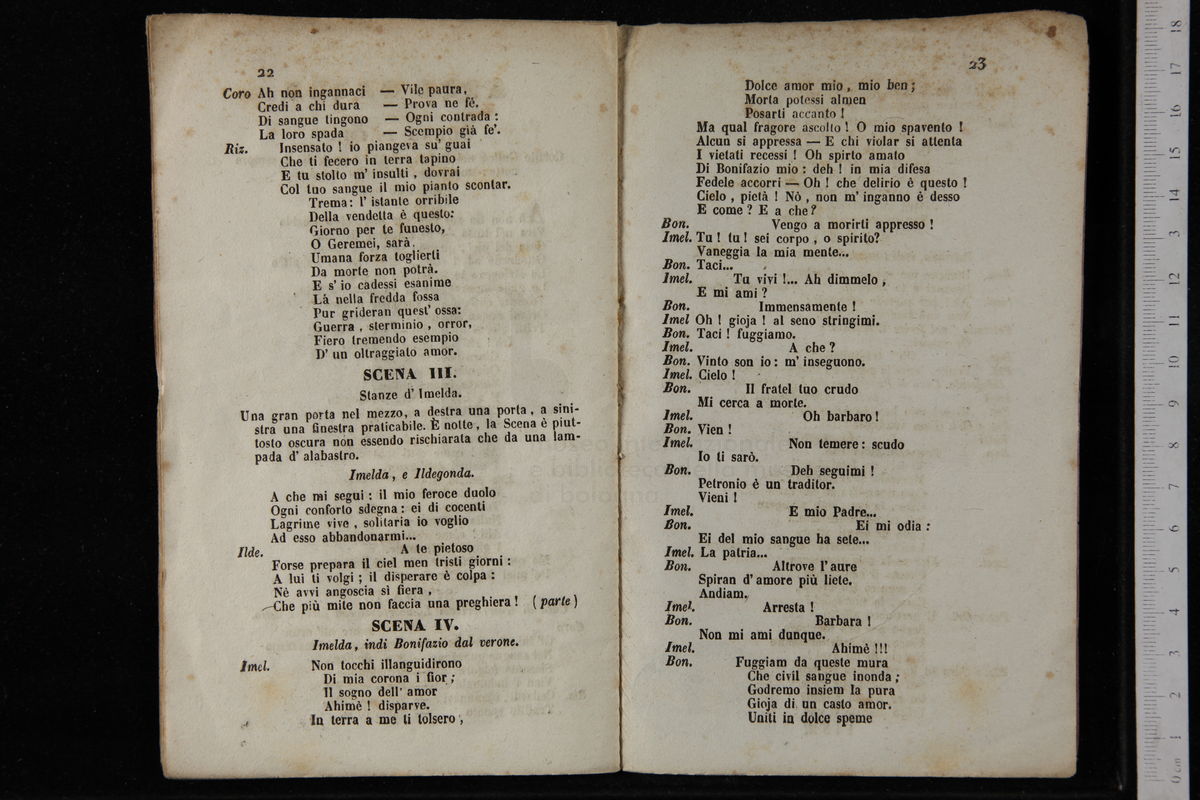 22
Coro Ah non ingannaci — Vile paura,
Credi a chi dura — Prova ne fé.
Di sangue tingono — Ogni contrada :
La loro spada — Scempio già fe'.
Riz. Insensato ! io piangeva su' guai
Che ti fecero in terra tapino
E tu stolto m' insulti , dovrai
Col tuo sangue il mio pianto scontar.
Trema: l' istante orribile
Della vendetta è questo:
Giorno per te funesto,
O Geremei, sarà.
Umana forza toglierti
Da morte non potrà.
E s' io cadessi esanime
Là nella fredda fossa
Pur grideran quest' ossa:
Guerra , sterminio , orror,
Fiero tremendo esempio
D' un oltraggiato amor.
SCENA III.
Stanze d' Imelda.
Una gran porta nel mezzo, a destra una porta , a sini-
stra una finestra praticabile. È notte , la Scena è piut-
tosto oscura non essendo rischiarata che da una lam-
pada d' alabastro.
Imelda , e Ildegonda.
A che mi segui : il mio feroce duolo
Ogni conforto sdegna : ei di cocenti
Lagrime vive , solitaria io voglio
Ad esso abbandonarmi...
Ilde. A te pietoso
Forse prepara il ciel men tristi giorni :
A lui ti volgi ; il disperare è colpa :
Nè avvi angoscia sì fiera ,
Che più mite non faccia una preghiera ! ( parte )
SCENA IV.
Imelda , indi Bonifazio dal verone.
Imel. Non tocchi illanguidirono
Di mia corona i fior ;
Il sogno dell' amor
Ahimè ! disparve.
In terra a me ti tolsero ,
23
Dolce amor mio , mio ben ;
Morta potessi almen
Posarti accanto !
Ma qual fragore ascolto ! O mio spavento !
Alcun si appressa — E chi violar si attenta
I vietati recessi ! Oh spirto amato
Di Bonifazio mio : deh ! in mia difesa
Fedele accorri — Oh ! che delirio è questo !
Cielo , pietà ! Nò , non m' inganno è desso
E come ? E a che ?
Bon. Vengo a morirti appresso !
Imel. Tu ! tu ! sei corpo , o spirito?
Vaneggia la mia mente...
Bon. Taci...
Imel. Tu vivi !... Ah dimmelo ,
E mi ami ?
Bon. Immensamente !
Imel Oh ! gioja ! al seno stringimi.
Bon. Taci ! fuggiamo.
Imel. A che ?
Bon. Vinto son io : m' inseguono.
Imel. Cielo !
Bon. Il fratel tuo crudo
Mi cerca a morte.
Imel. Oh barbaro !
Bon. Vien !
Imel. Non temere : scudo
Io ti sarò.
Bon. Deh seguimi !
Petronio è un traditor.
Vieni !
Imel. E mio Padre...
Bon. Ei mi odia :
Ei del mio sangue ha sete...
Imel. La patria...
Bon. Altrove l' aure
Spiran d' amore più liete.
Andiam.
Imel. Arresta !
Bon. Barbara !
Non mi ami dunque.
Imel. Ahimè !!!
Bon. Fuggiam da queste mura
Che civil sangue inonda ;
Godremo insiem la pura
Gioja di un casto amor.
Uniti in dolce speme